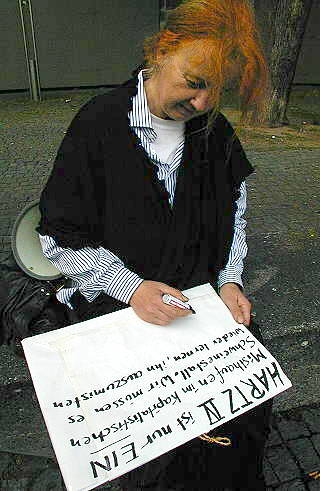 HARTZ IV ist nur EIN
Misthaufen im Kapitalistischen
Schweinestall. Wir müssen es
wieder lernen, ihn auszumisten